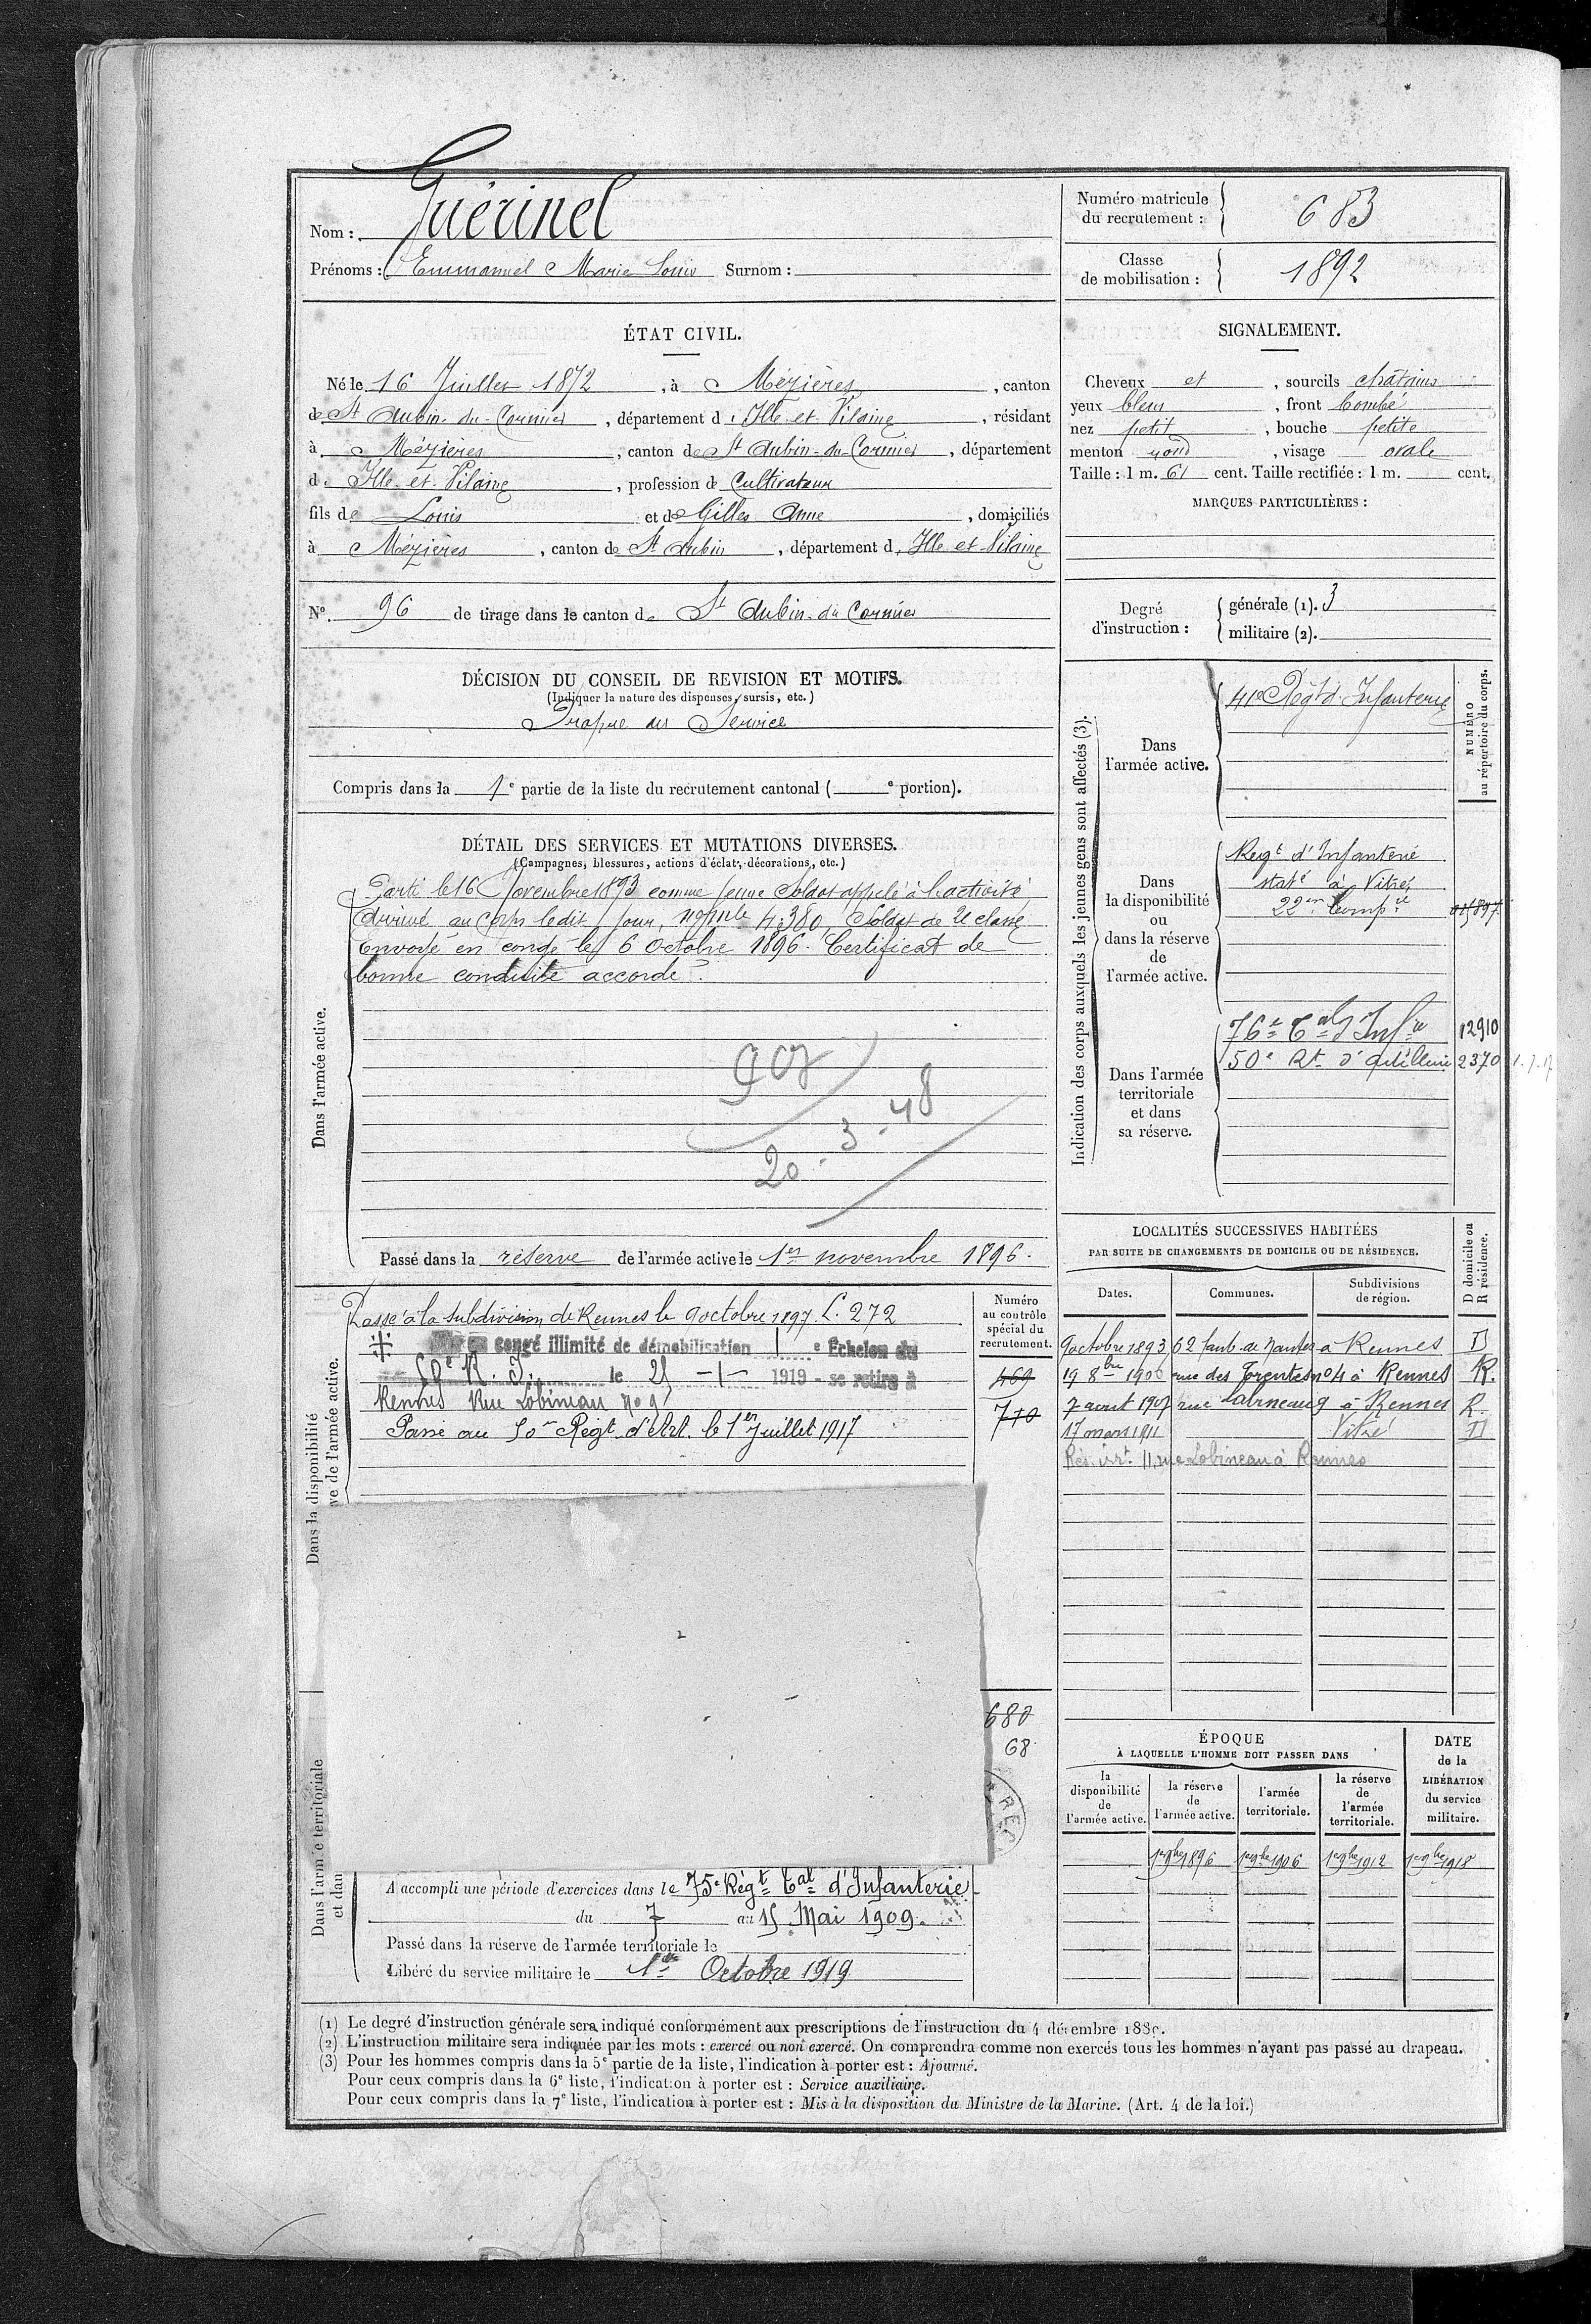 Nom : Guérinel
Prénoms : Emmanuel Marie Louis Surnom :
Numéro matricule du recrutement : 683
Classe de mobilisation : 1892
ÉTAT CIVIL.
Né le 16 Juillet 1872, à Mézières, canton
de St Aubin-du-Cormier, département d'Ille et Vilaine, résidant
à Mézières, canton de St Aubin-du-Cormier, département
d'Ille-et-Vilaine, profession de Cultivateur
fils de Louis et de Gilles Anne, domiciliés
à Mézières, canton de St Aubin, département d'Ille et Vilaine
N° 96 de tirage dans le canton de St Aubin-du Cormier
SIGNALEMENT.
Cheveux et, sourcils chatains
yeux bleus, front bombé
nez petit, bouche petite
menton rond, visage ovale
Taille : 1 m. 61 cent. Taille rectifiée : 1 m. cent.
MARQUES PARTICULIÈRES :
Degré d'instruction :
générale (1). 3
militaire (2).
DÉCISION DU CONSEIL DE REVISION ET MOTIFS.
(Indiquer la nature des dispenses, sursis, etc.)
Propre au Service
Compris dans la 1e partie de la liste du recrutement cantonal ( e portion).
DÉTAIL DES SERVICES ET MUTATIONS DIVERSES.
(Campagnes, blessures, actions d'éclat, décorations, etc.)
Dans l'armée active.
Parti le 16 Novembre 1893 comme jeune Soldat appelé à l'activité
Arrivé au corps le dit jour, no mle 4380 Soldat de 2e classe
Envoyé en congé le 6 Octobre 1896. Certificat de
bonne conduite accordé.
907
20-3-48
Passé dans la réserve de l'armée active le 1er novembre 1896.
Indication des corps auxquels les jeunes gens sont affectés (3).
NUMÉRO au répertoire du corps.
Dans l'armée active.
41e Régt d'Infanterie
Dans la disponibilité ou dans la réserve de l'armée active.
Regt d'Infanterie
staté à Vitré
22em Comp
Dans l'armée territoriale et dans sa réserve.
76e Tal d'Infie 12910
50e Rt d'artillerie 2370 1.7.17
Dans la disponibilité
ve de l'armée active.
Numéro au contrôle spécial du recrutement.
Passé à la subdivision de Rennes le 9 octobre 1897. L. 272
congé illimité de démobilisation 1 e Echelon du
50e R. I. le 25 -1- 1919 - se retire à
Rennes Rue Lobineau no 9
Passé au 50e Régt d'Art. le 1er Juillet 1917
469
710
680
68
LOCALITÉS SUCCESSIVES HABITÉES
PAR SUITE DE CHANGEMENTS DE DOMICILE OU DE RÉSIDENCE.
Dates. Communes. Subdivisions de région. D domicile ou R résidence.
9 octobre 1893 62 Faub de Nantes à Rennes D
19 8bre 1900 rue des Trente no 4 à Rennes R.
7 aout 1907 rue Lobineau 9 à Rennes R.
17 mars 1911 Vitré D
Rés. 11 rue Lobineau à Rennes
ÉPOQUE
À LAQUELLE L'HOMME DOIT PASSER DANS
la disponibilité de l'armée active.
la réserve de l'armée active.
l'armée territoriale.
la réserve de l'armée territoriale.
DATE de la LIBÉRATION du service militaire.
1er 9bre 1896 1er 9bre 1906 1er 9bre 1912 1er 9bre 1918
Dans l'armée territoriale
et dan
A accompli une période d'exercices dans le 75e Régt Tal d'Infanterie
du 7 au 15 Mai 1909.
Passé dans la réserve de l'armée territoriale le
Libéré du service militaire le 1er Octobre 1919
(1) Le degré d'instruction générale sera indiqué conformément aux prescriptions de l'instruction du 4 décembre 1889.
(2) L'instruction militaire sera indiquée par les mots : exercé ou non exercé. On comprendra comme non exercés tous les hommes n'ayant pas passé au drapeau.
(3) Pour les hommes compris dans la 5e partie de la liste, l'indication à porter est : Ajourné.
Pour ceux compris dans la 6e liste, l'indication à porter est : Service auxiliaire.
Pour ceux compris dans la 7e liste, l'indication à porter est : Mis à la disposition du Ministre de la Marine. (Art. 4 de la loi.)